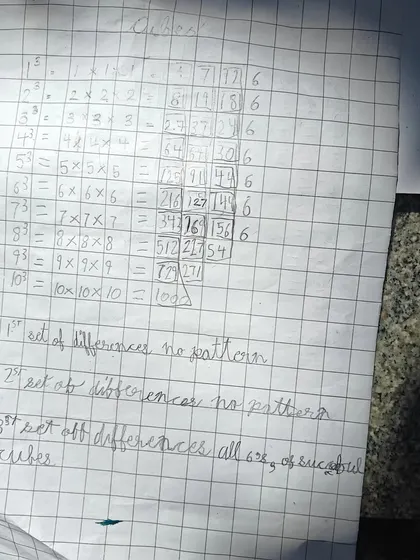 Cubes
1³ = 1 × 1 × 1 = 1 7 12 6
2³ = 2 × 2 × 2 = 8 19 18 6
3³ = 3 × 3 × 3 = 27 37 24 6
4³ = 4 × 4 × 4 = 64 30 6
5³ = 5 × 5 × 5 = 125 91 44 6
6³ = 6 × 6 × 6 = 216 127 6
7³ = 7 × 7 × 7 = 343 169 156 6
8³ = 8 × 8 × 8 = 512 217 54
9³ = 9 × 9 × 9 = 729 271
10³ = 10 × 10 × 10 = 1000
1ST set of differences no pattern
2ST set of differences no pattern
3ST set off differences all 6s, of
cubes